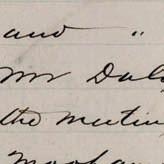 and "
Mr Daly
the meetin